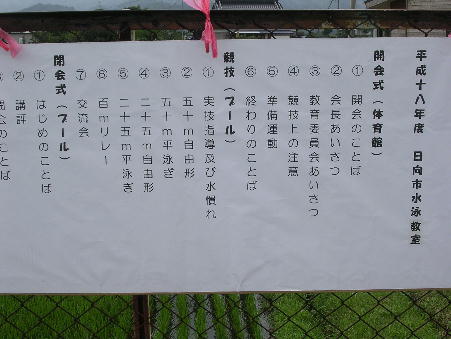 平成十八年度 日向市水泳教室
開会式(体育館)
①開会のことば
②会長あいさつ
③教育委員会あいさつ
④競技上の注意
⑤準備運動
⑥終わりのことば
競技(プール)
①実技指導及び水慣れ
②五十m自由形
③五十m平泳ぎ
④二十五m自由形
⑤二十五m平泳ぎ
⑥百mリレー
⑦交流会
閉会式(プール)
①はじめのことば
②講評
③閉会のことば